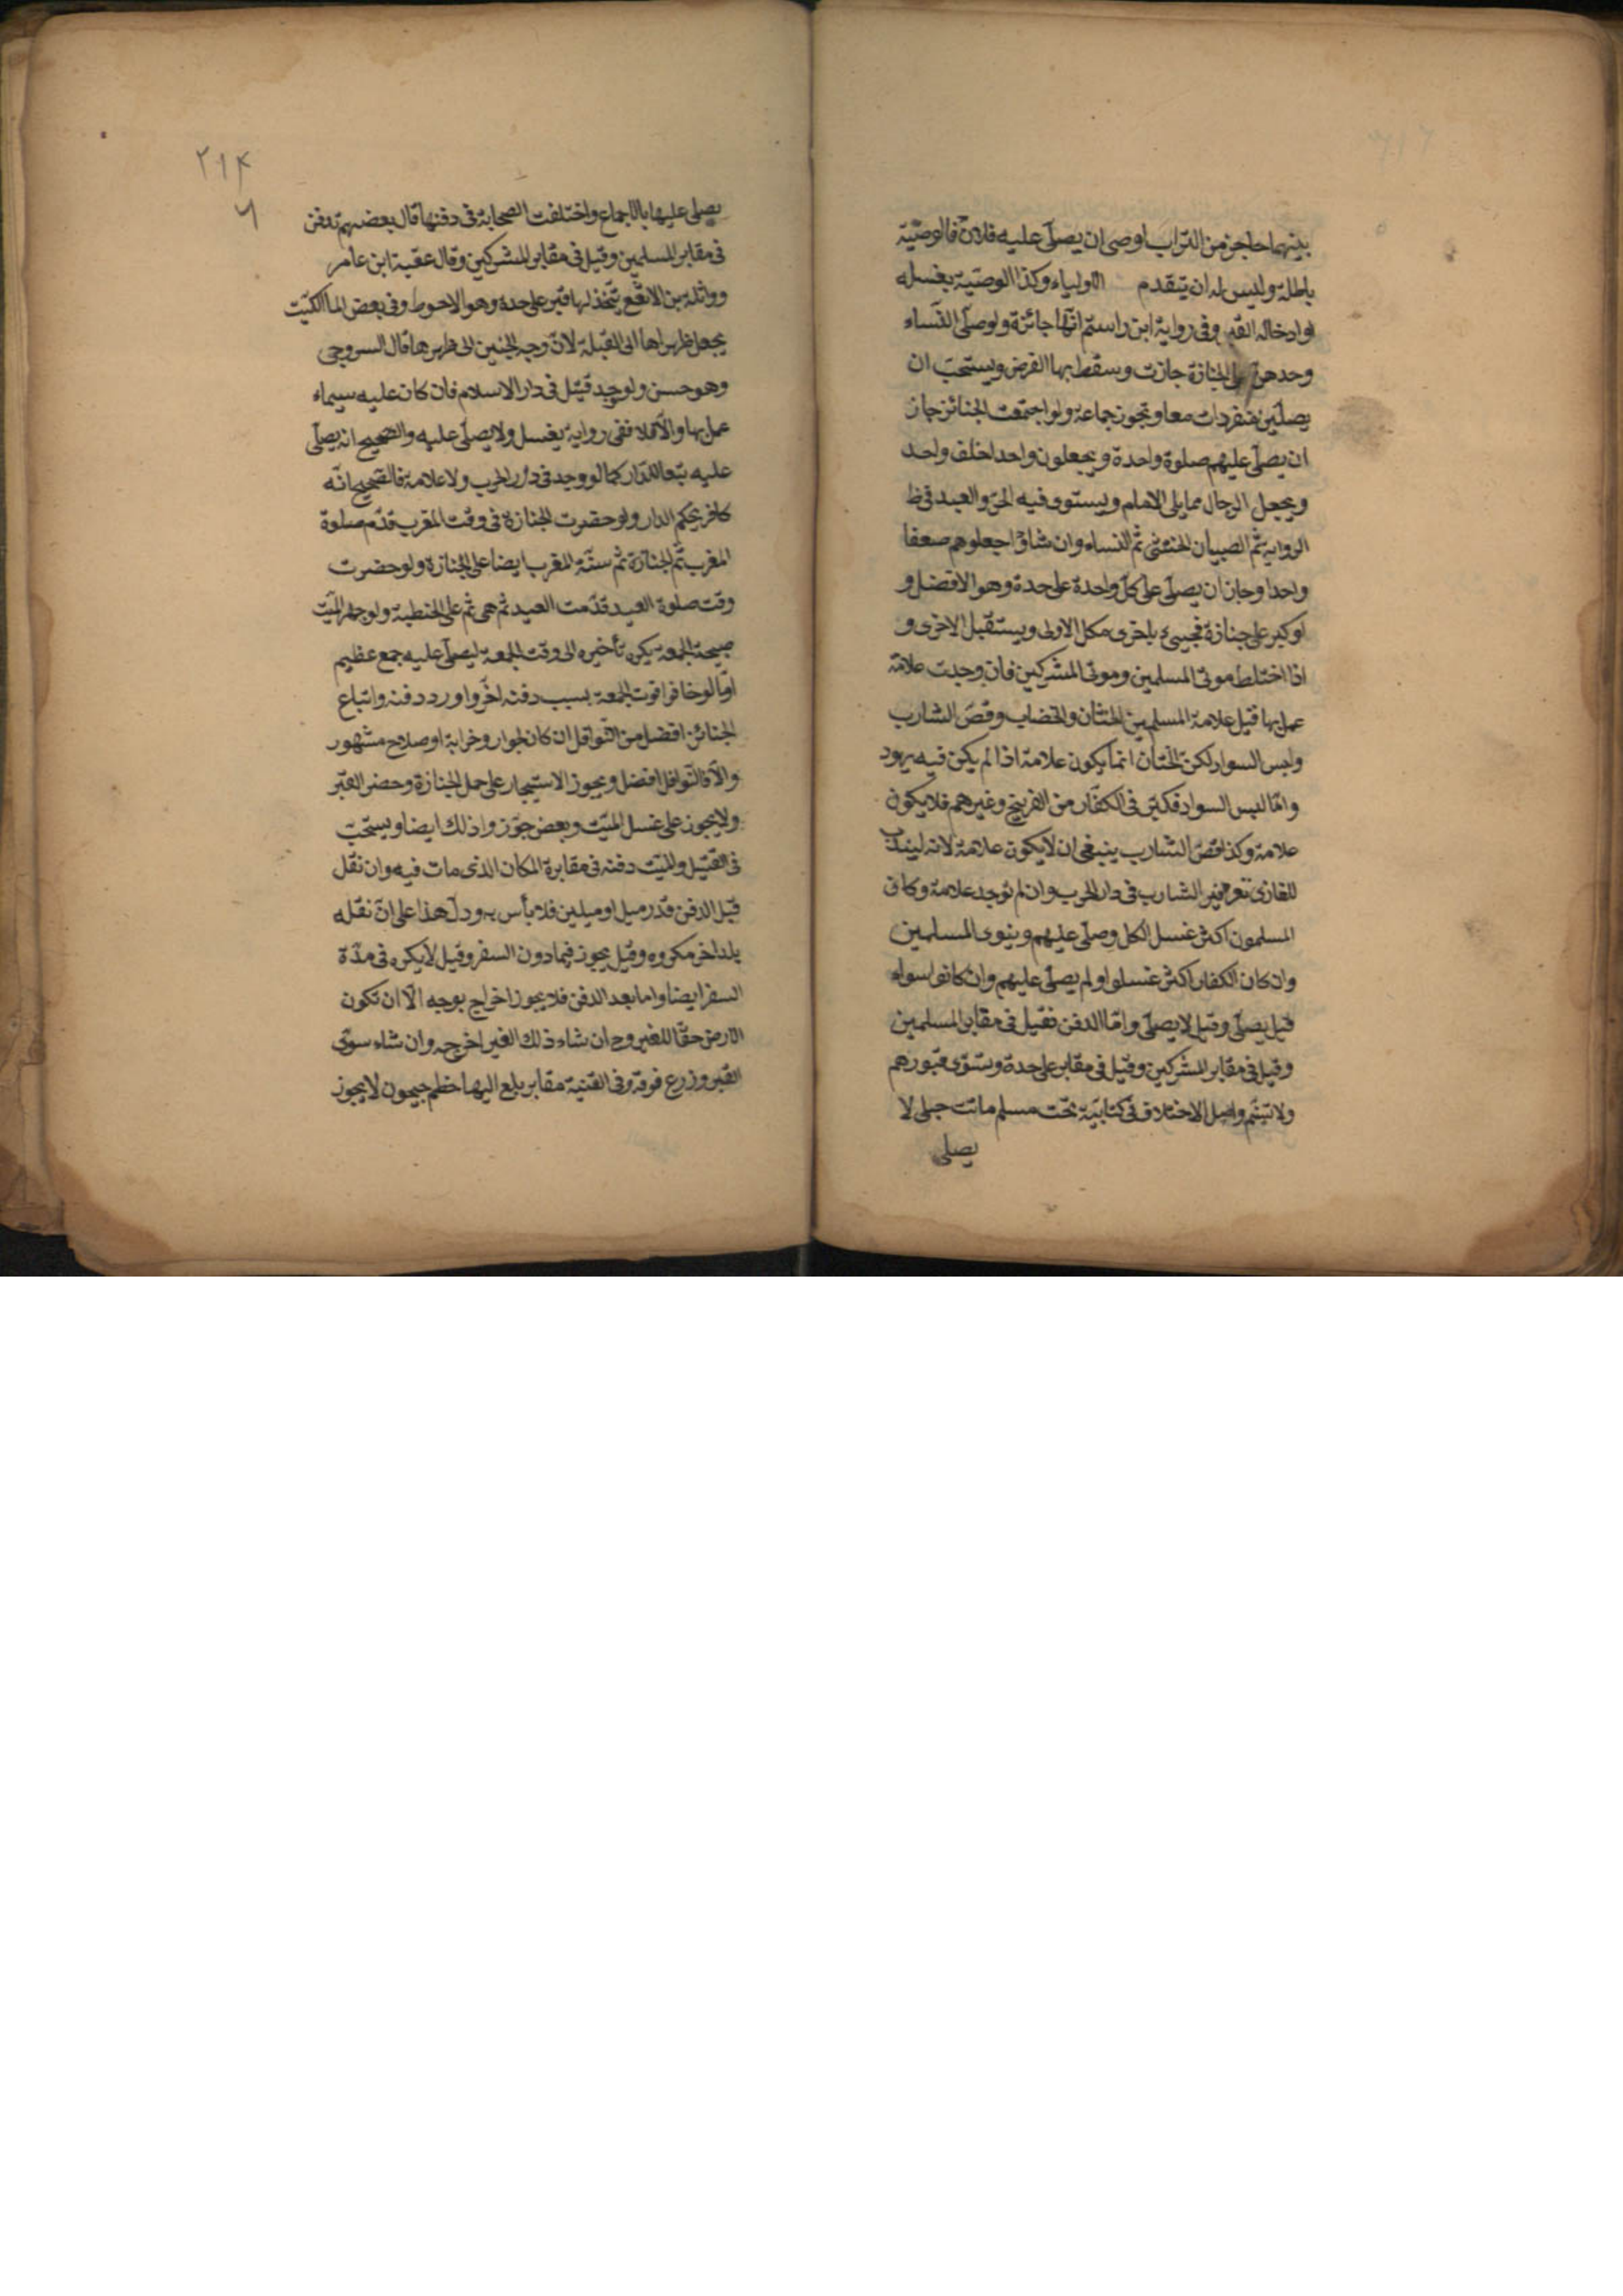 بينهما حاجز من التراب اوصى ان يصلّى عليه فلانٌ فالوصيّة
باطلة وليس له ان يتقدم الاولياء وكذا الوصيّة بغسله
او ادخاله القبر وفى رواية ابن راستم انّها جائزة ولو صلّى النّساء
وحدهنّ على الجنازة جازت وسقط بها الفرض ويستحبّ ان
يصلّين منفردات معا وتجوز جماعة ولو اجتمعت الجنائز جاز
ان يصلّى عليهم صلوة واحدة ويجعلون واحدا خلف واحد
ويجعل الرجال مما يلى الامام ويستوى فيه الحرّ والعبد فى ظ
الرواية ثمّ الصبيان الخنثى ثمّ النساء وان شاؤا جعلوهم صفا
واحدا وجاز ان يصلّى على كلّ واحدة على حدة وهو الافضل و
لو كبر على جنازة فجيىء باخرى مكل الاولى ويستقبل الاخرى و
اذا اختلط موتى المسلمين وموتى المشركين فان وجدت علامة
عمل بها قيل علامة المسلمين الختان والخضاب وقصّ الشارب
ولبس السواد لكن الختان انّما يكون علامة اذا لم يكن فيه يهود
وامّا لبس السواد فكثير فى الكفّار من الفرينج وغيرهم فلا يكون
علامة وكذا قصّ الشارب ينبغى ان لا يكون علامة لانه ليندب
للغازى توفير الشارب فى دار الحرب وان لم توجد علامة وكان
المسلمون اكثر غسل الكل وصلّى عليهم وينوى المسلمين
وان كان الكفار اكثر غسلوا ولم يصلّى عليهم وان كانوا سواء
قيل يصلّى وقيل لا يصلّى وامّا الدفن فقيل فى مقابر المسلمين
وقيل فى مقابر المشركين وقيل فى مقابر على حدة وستوّى قبورهم
ولا تسنّم واصل الاختلاف فى كتابيّة تحت مسلم ماتت حبلى لا
يصلى
٢١٤
يصلى عليها بالاجماع واختلفت الصحابة فى دفنها قال بعضهم تدفن
فى مقابر المسلمين وقيل فى مقابر المشركين وقال عقبة ابن عامر
وواثلة بن الاسقع يتّخذ لها قبر على حدة وهو الاحوط وفى بعض
يجعل ظهراها الى القبلة لانّ وجه الجنين الى ظهرها قال السروجى
وهو حسن ولو وجد قتيل فى دار الاسلام فان كان عليه سيماء
عمل بها والّا فلا ففى رواية يغسل ولا يصلّى عليه والصّحيح انه يصلّى
عليه تبعا للدّار كما لو وجد فى دار الحرب ولا علامة فالصّحيح انّه
كافر بحكم الدار ولو حضرت الجنازة فى وقت المغرب قدّم صلوة
المغرب ثمّ الجنازة ثم سنّة المغرب ايضا على الجنازة ولو حضرت
وقت صلوة العيد قدّمت العيد ثم هى ثم على الخطبة ولو جهز الميّت
صبيحة الجمعة يكره تأخيره الى وقت الجمعة ليصلّى عليه جمع عظيم
امّا لو خافرا فوت الجمعة بسبب دفنه اخّروا ورد دفنه واتباع
الجنائز افضل من النّوافل ان كان لجوار وخرابة او صلاح مشهور
والّا فالنّوافل افضل ويجوز الاستيجار على حمل الجنازة وحضر القبر
ولا يجوز على غسل الميّت وبعض جوّزوا ذلك ايضا ويستحبّ
فى القتيل والميّت دفنه فى مقابرة المكان الذى مات فيه وان نقل
قبل الدفن قدر ميل او ميلين فلا بأس به ودلّ هذا على انّ نقله
بلد اخر مكروه وقيل يجوز فيما دون السفر وقيل لا يكره فى مدّة
السفر ايضا واما بعد الدفن فلا يجوز اخراج بوجه الّا ان تكون
الارض حقّا للغير وح ان شاء ذلك الغير اخرجه وان شاء سوّى
القبر وزرع فوقه وفى القنية مقابر بلع اليها خطم جيحون لا يجوز